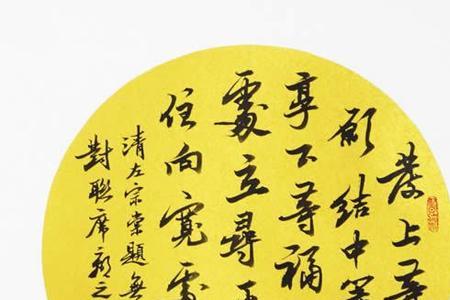 發上等
願結中等
享下等福
處立尋
住向寬處
清左宗棠題無
對聯席之